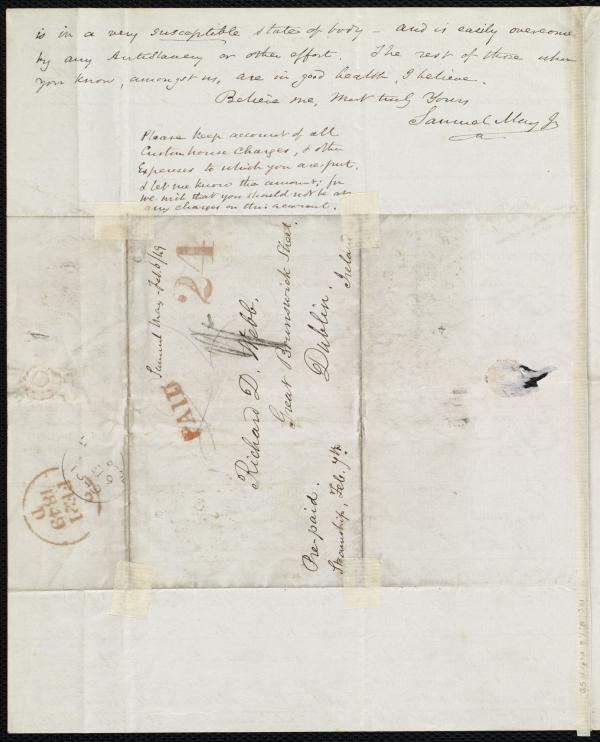 is in a very susceptible state of body – and is easily overcome
by any Antislavery or other effort. The rest of those whom
you know, amongst us, are in good health, I believe.
Believe me, Most truly Yours
Samuel May Jr
Please keep account of all
Custom house Charges, & other
Expenses to which you are put,
& let me know the amount; for
we wish that you should not be at
any charges on this account.
Samuel May - Feb 6/49
24
PAID
Richard D. Webb.
Great Brunswick Street
Dublin.
Ireland
Pre-paid.
Steamship, Feb. 7th